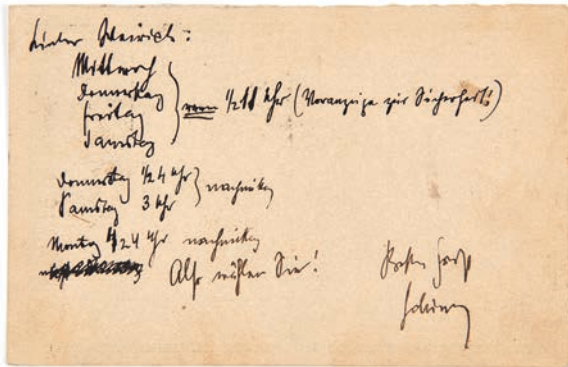 Lieber Weirich:
Mittwoch
Donnerstag
Freitag
Samstag
vorm 1/2 11 Uhr (Voranzeige zur Sicherheit!)
Donnerstag 1/2 4 Uhr
Samstag 3 Uhr
nachmittag
Montag 1/2 4 Uhr nachmittag
Also wählen Sie!
Besten Gruß